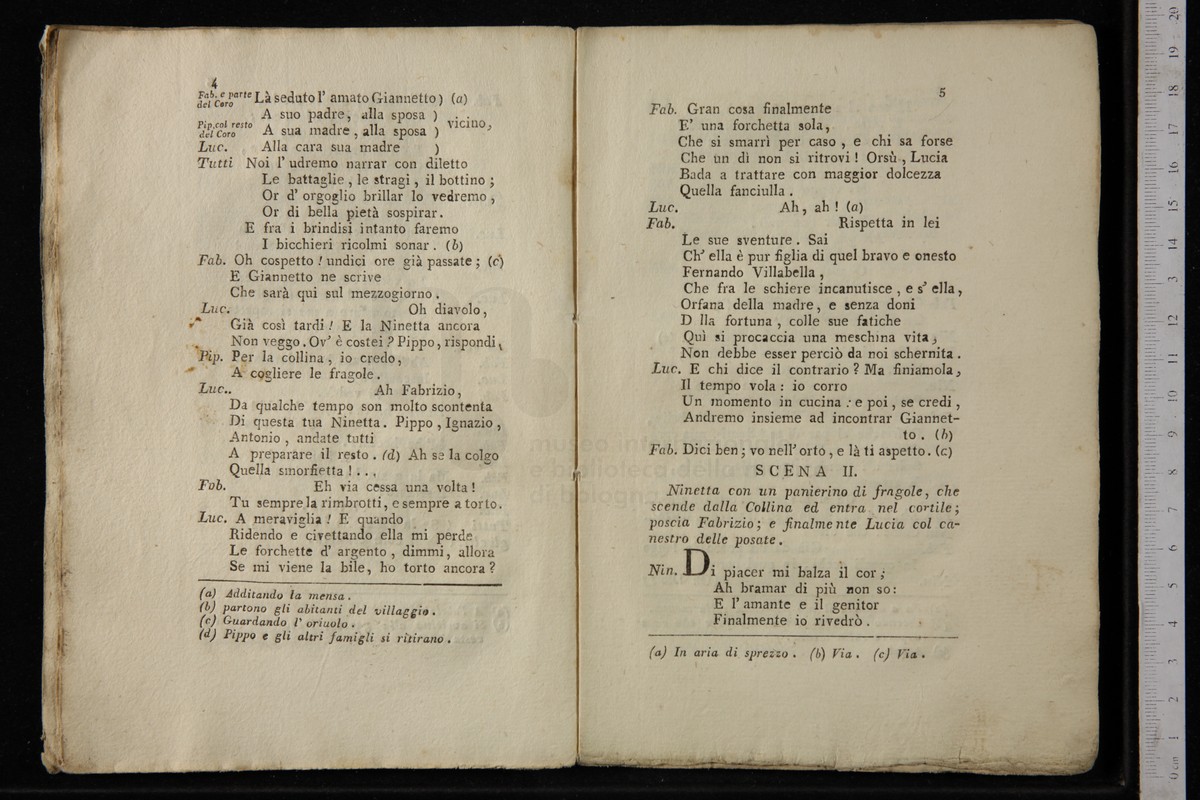 4
Fab. e parte del Coro Là seduto l' amato Giannetto) (a)
A suo padre, alla sposa )
Pip. col resto del Coro A sua madre, alla sposa ) vicino,
Luc. Alla cara sua madre )
Tutti Noi l' udremo narrar con diletto
Le battaglie, le stragi, il bottino;
Or d' orgoglio brillar lo vedremo,
Or di bella pietà sospirar.
E fra i brindisi intanto faremo
I bicchieri ricolmi sonar. (b)
Fab. Oh cospetto! undici ore già passate; (c)
E Giannetto ne scrive
Che sarà qui sul mezzogiorno.
Luc. Oh diavolo,
Già così tardi! E la Ninetta ancora
Non veggo. Ov' è costei? Pippo, rispondi,
Pip. Per la collina, io credo,
A cogliere le fragole.
Luc.. Ah Fabrizio,
Da qualche tempo son molto scontenta
Di questa tua Ninetta. Pippo, Ignazio,
Antonio, andate tutti
A preparare il resto. (d) Ah se la colgo
Quella smorfietta!...
Fob. Eh via cessa una volta!
Tu sempre la rimbrotti, e sempre a torto.
Luc. A meraviglia! E quando
Ridendo e civettando ella mi perde
Le forchette d' argento, dimmi, allora
Se mi viene la bile, ho torto ancora?
(a) Additando la mensa.
(b) partono gli abitanti del villaggio.
(c) Guardando l' oriuolo.
(d) Pippo e gli altri famigli si ritirano.
5
Fab. Gran cosa finalmente
E' una forchetta sola,
Che si smarrì per caso, e chi sa forse
Che un dì non si ritrovi! Orsù, Lucia
Bada a trattare con maggior dolcezza
Quella fanciulla.
Luc. Ah, ah! (a)
Fab. Rispetta in lei
Le sue sventure. Sai
Ch' ella è pur figlia di quel bravo e onesto
Fernando Villabella,
Che fra le schiere incanutisce, e s' ella,
Orfana della madre, e senza doni
D lla fortuna, colle sue fatiche
Quì si procaccia una meschina vita,
Non debbe esser perciò da noi schernita.
Luc. E chi dice il contrario? Ma finiamola,
Il tempo vola: io corro
Un momento in cucina: e poi, se credi,
Andremo insieme ad incontrar Giannet-
to. (b)
Fab. Dici ben; vo nell' orto, e là ti aspetto. (c)
SCENA II.
Ninetta con un panierino di fragole, che
scende dalla Collina ed entra nel cortile;
poscia Fabrizio; e finalmente Lucia col ca-
nestro delle posate.
Nin. Di piacer mi balza il cor;
Ah bramar di più non so:
E l' amante e il genitor
Finalmente io rivedrò.
(a) In aria di sprezzo. (b) Via. (c) Via.